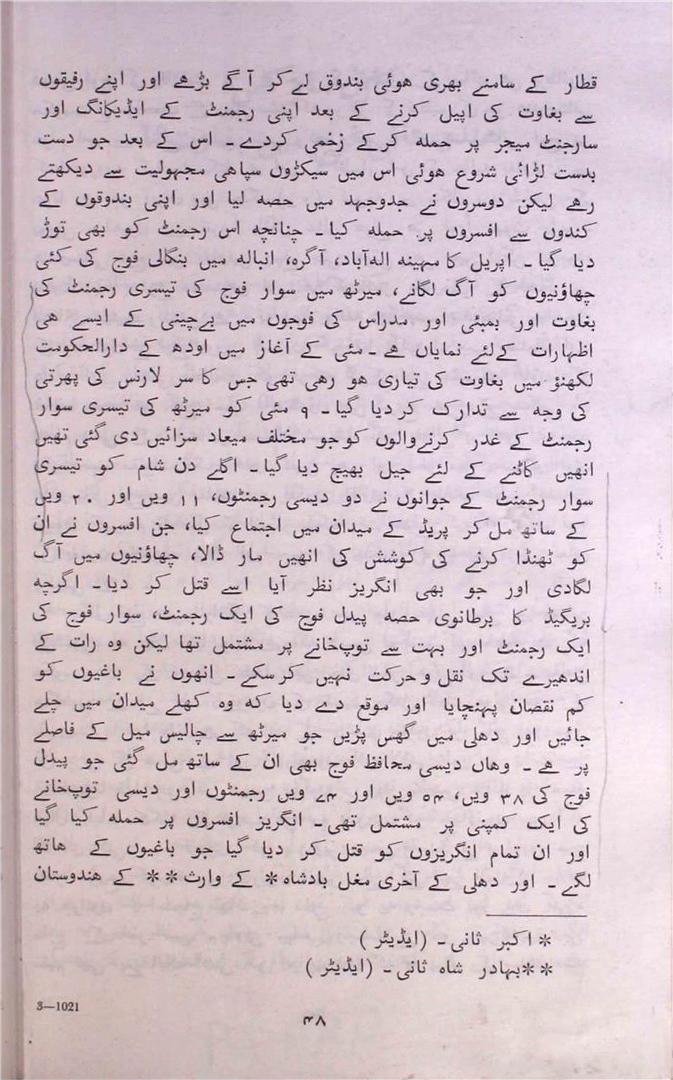 قطار کے سامنے بھری ھوئی بندوق لےکر آگے بڑھے اور اپنے رفیقوں
سے بغاوت کی اپیل کرنے کے بعد اپنی رجمنٹ کے ایڈیکانگ اور
سارجنٹ میجر پر حملہ کرکے زخمی کردے۔ اس کے بعد جو دست
بدست لڑائی شروع ھوئی اس میں سیکڑوں سپاھی مجہولیت سے دیکھتے
رھے لیکن دوسروں نے جدوجہد میں حصہ لیا اور اپنی بندوقوں کے
کندوں سے افسروں پر حملہ کیا۔ چنانچہ اس رجمنٹ کو بھی توڑ
دیا گیا۔ اپریل کا مہینہ الہ‌آباد، آگرہ، انبالہ میں بنگالی فوج کی کئی
چھاؤنیوں کو آگ لگانے، میرٹھ میں سوار فوج کی تیسری رجمنٹ کی
بغاوت اور بمبئی اور مدراس کی فوجوں میں بےچینی کے ایسے ھی
اظہارات کےلئے نمایاں ھے۔ مئی کے آغاز میں اودھ کے دارالحکومت
لکھنؤ میں بغاوت کی تیاری ھو رھی تھی جس کا سر لارنس کی پھرتی
کی وجہ سے تدارک کر دیا گیا۔ ۹ مئی کو میرٹھ کی تیسری سوار
رجمنٹ کے غدر کرنےوالوں کو جو مختلف میعاد سزائیں دی گئی تھیں
انھیں کاٹنے کے لئے جیل بھیج دیا گیا۔ اگلے دن شام کو تیسری
سوار رجمنٹ کے جوانوں نے دو دیسی رجمنٹوں، ۱۱ ویں اور ۲۰ ویں
کے ساتھ مل کر پریڈ کے میدان میں اجتماع کیا، جن افسروں نے ان
کو ٹھنڈا کرنے کی کوشش کی انھیں مار ڈالا، چھاؤنیوں میں آگ
لگادی اور جو بھی انگریز نظر آیا اسے قتل کر دیا۔ اگرچہ
بریگیڈ کا برطانوی حصہ پیدل فوج کی ایک رجمنٹ، سوار فوج کی
ایک رجمنٹ اور بہت سے توپ‌خانے پر مشتمل تھا لیکن وہ رات کے
اندھیرے تک نقل و حرکت نہیں کرسکے۔ انھوں نے باغیوں کو
کم نقصان پہنچایا اور موقع دے دیا کہ وہ کھلے میدان میں چلے
جائیں اور دھلی میں گھس پڑیں جو میرٹھ سے چالیس میل کے فاصلے
پر ھے۔ وھاں دیسی محافظ فوج بھی ان کے ساتھ مل گئی جو پیدل
فوج کی ۳۸ ویں، ۵۴ ویں اور ۷۴ ویں رجمنٹوں اور دیسی توپ‌خانے
کی ایک کمپنی پر مشتمل تھی۔ انگریز افسروں پر حملہ کیا گیا
اور ان تمام انگریزوں کو قتل کر دیا گیا جو باغیوں کے ھاتھ
لگے۔ اور دھلی کے آخری مغل بادشاہ* کے وارث** کے ھندوستان
* اکبر ثانی۔ (ایڈیٹر)
**بہادر شاہ ثانی۔ (ایڈیٹر)
3—1021
۴۸